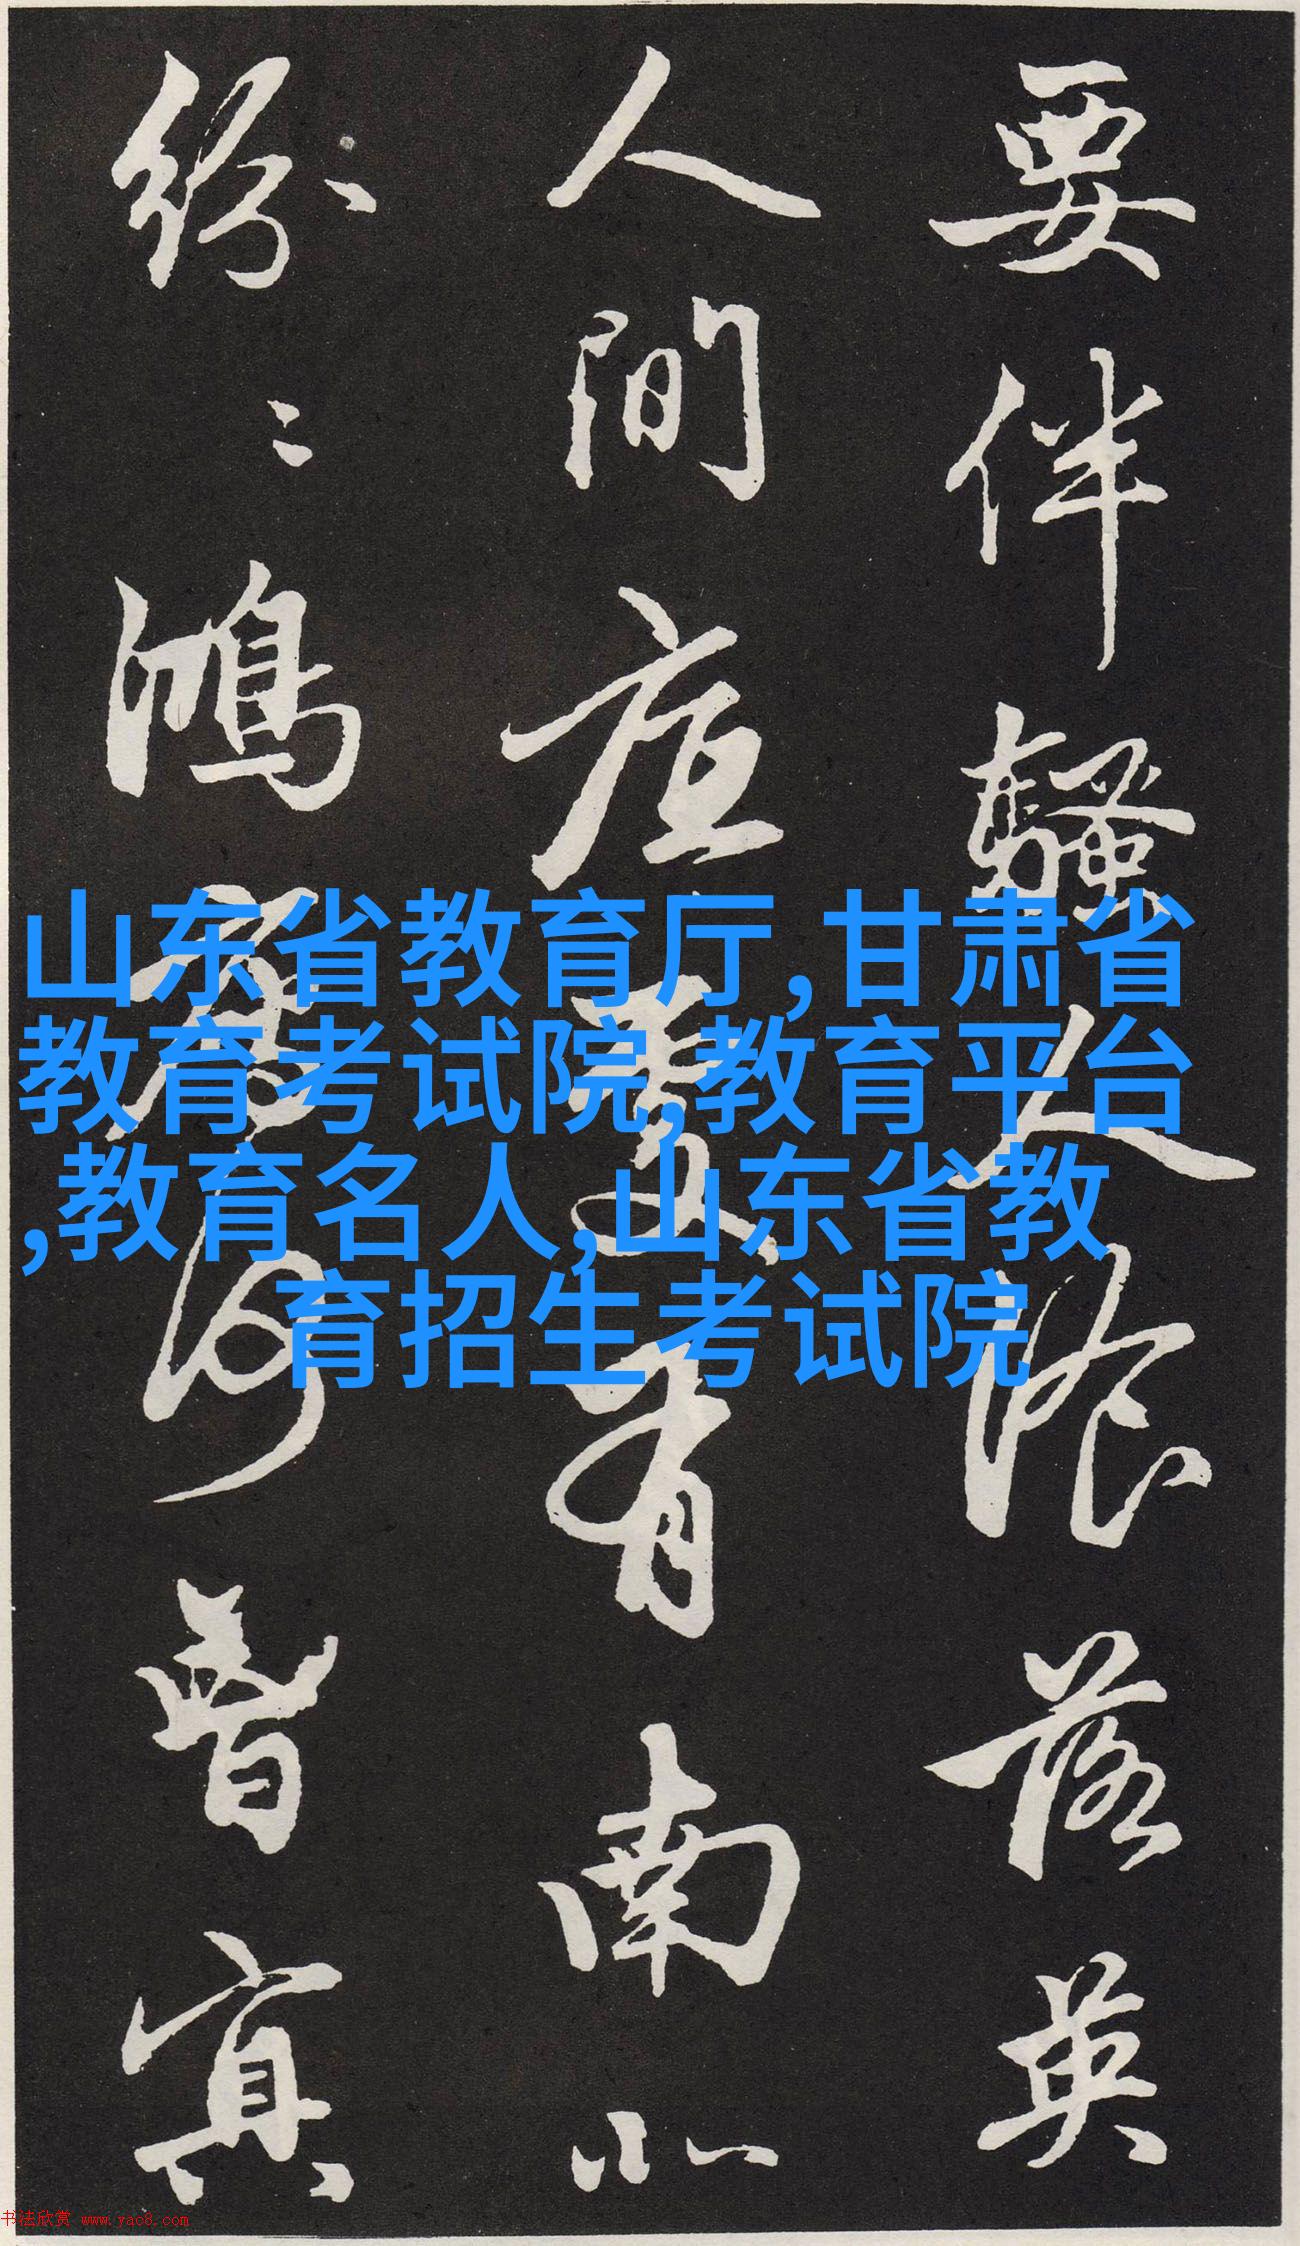 要伴騷人湌落英
人間底處有南北
紛〻鴻雁何曾冥
山东省教育厅,甘肃省
教育考试院,教育平台
,教育名人,山东省教
育招生考试院
书法欣赏 www.yac8.com